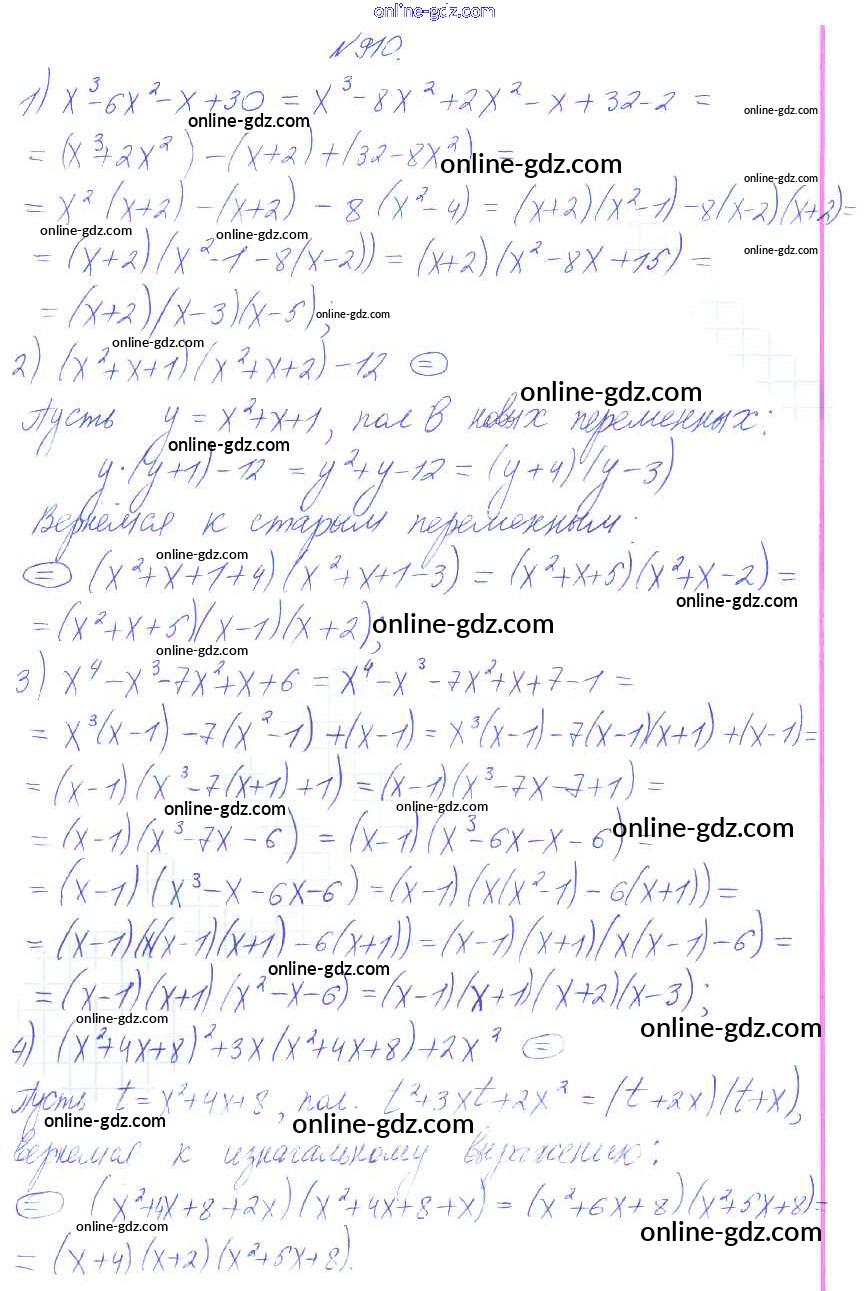 online-gdz.com
№910.
1) x³-6x²-x+30 = x³-8x²+2x²-x+32-2 =
online-gdz.com
online-gdz.com
= (x³+2x²) -(x+2)+(32-8x²) =
online-gdz.com
online-gdz.com
= x²(x+2)-(x+2) - 8(x²-4) = (x+2)(x²-1)-8(x-2)(x+2)=
online-gdz.com
online-gdz.com
= (x+2)(x²-1-8(x-2)) = (x+2)(x²-8x+15) =
online-gdz.com
= (x+2)(x-3)(x-5);
online-gdz.com
online-gdz.com
2) (x²+x+1)(x²+x+2)-12 =
online-gdz.com
Пусть y = x²+x+1, пол В новых переменных:
online-gdz.com
y·(y+1)-12 = y²+y-12 = (y+4)(y-3)
Вернемся к старым переменным:
online-gdz.com
= (x²+x+1+4)(x²+x+1-3) = (x²+x+5)(x²+x-2) =
online-gdz.com
= (x²+x+5)(x-1)(x+2);
online-gdz.com
online-gdz.com
3) x⁴-x³-7x²+x+6 = x⁴-x³-7x²+x+7-1 =
= x³(x-1)-7(x²-1)+(x-1) = x³(x-1)-7(x-1)(x+1)+(x-1)=
= (x-1)(x³-7(x+1)+1) = (x-1)(x³-7x-7+1) =
online-gdz.com
online-gdz.com
= (x-1)(x³-7x-6) = (x-1)(x³-6x-x-6) =
online-gdz.com
= (x-1)(x³-x-6x-6) = (x-1)(x(x²-1)-6(x+1)) =
= (x-1)(x(x-1)(x+1)-6(x+1)) = (x-1)(x+1)(x(x-1)-6) =
online-gdz.com
= (x-1)(x+1)(x²-x-6) = (x-1)(x+1)(x+2)(x-3);
online-gdz.com
online-gdz.com
4) (x²+4x+8)²+3x(x²+4x+8)+2x² =
Пусть t = x²+4x+8, пол. t²+3xt+2x² = (t+2x)(t+x),
online-gdz.com
online-gdz.com
вернемся к изначальному выражению:
= (x²+4x+8+2x)(x²+4x+8+x) = (x²+6x+8)(x²+5x+8)=
online-gdz.com
online-gdz.com
= (x+4)(x+2)(x²+5x+8).